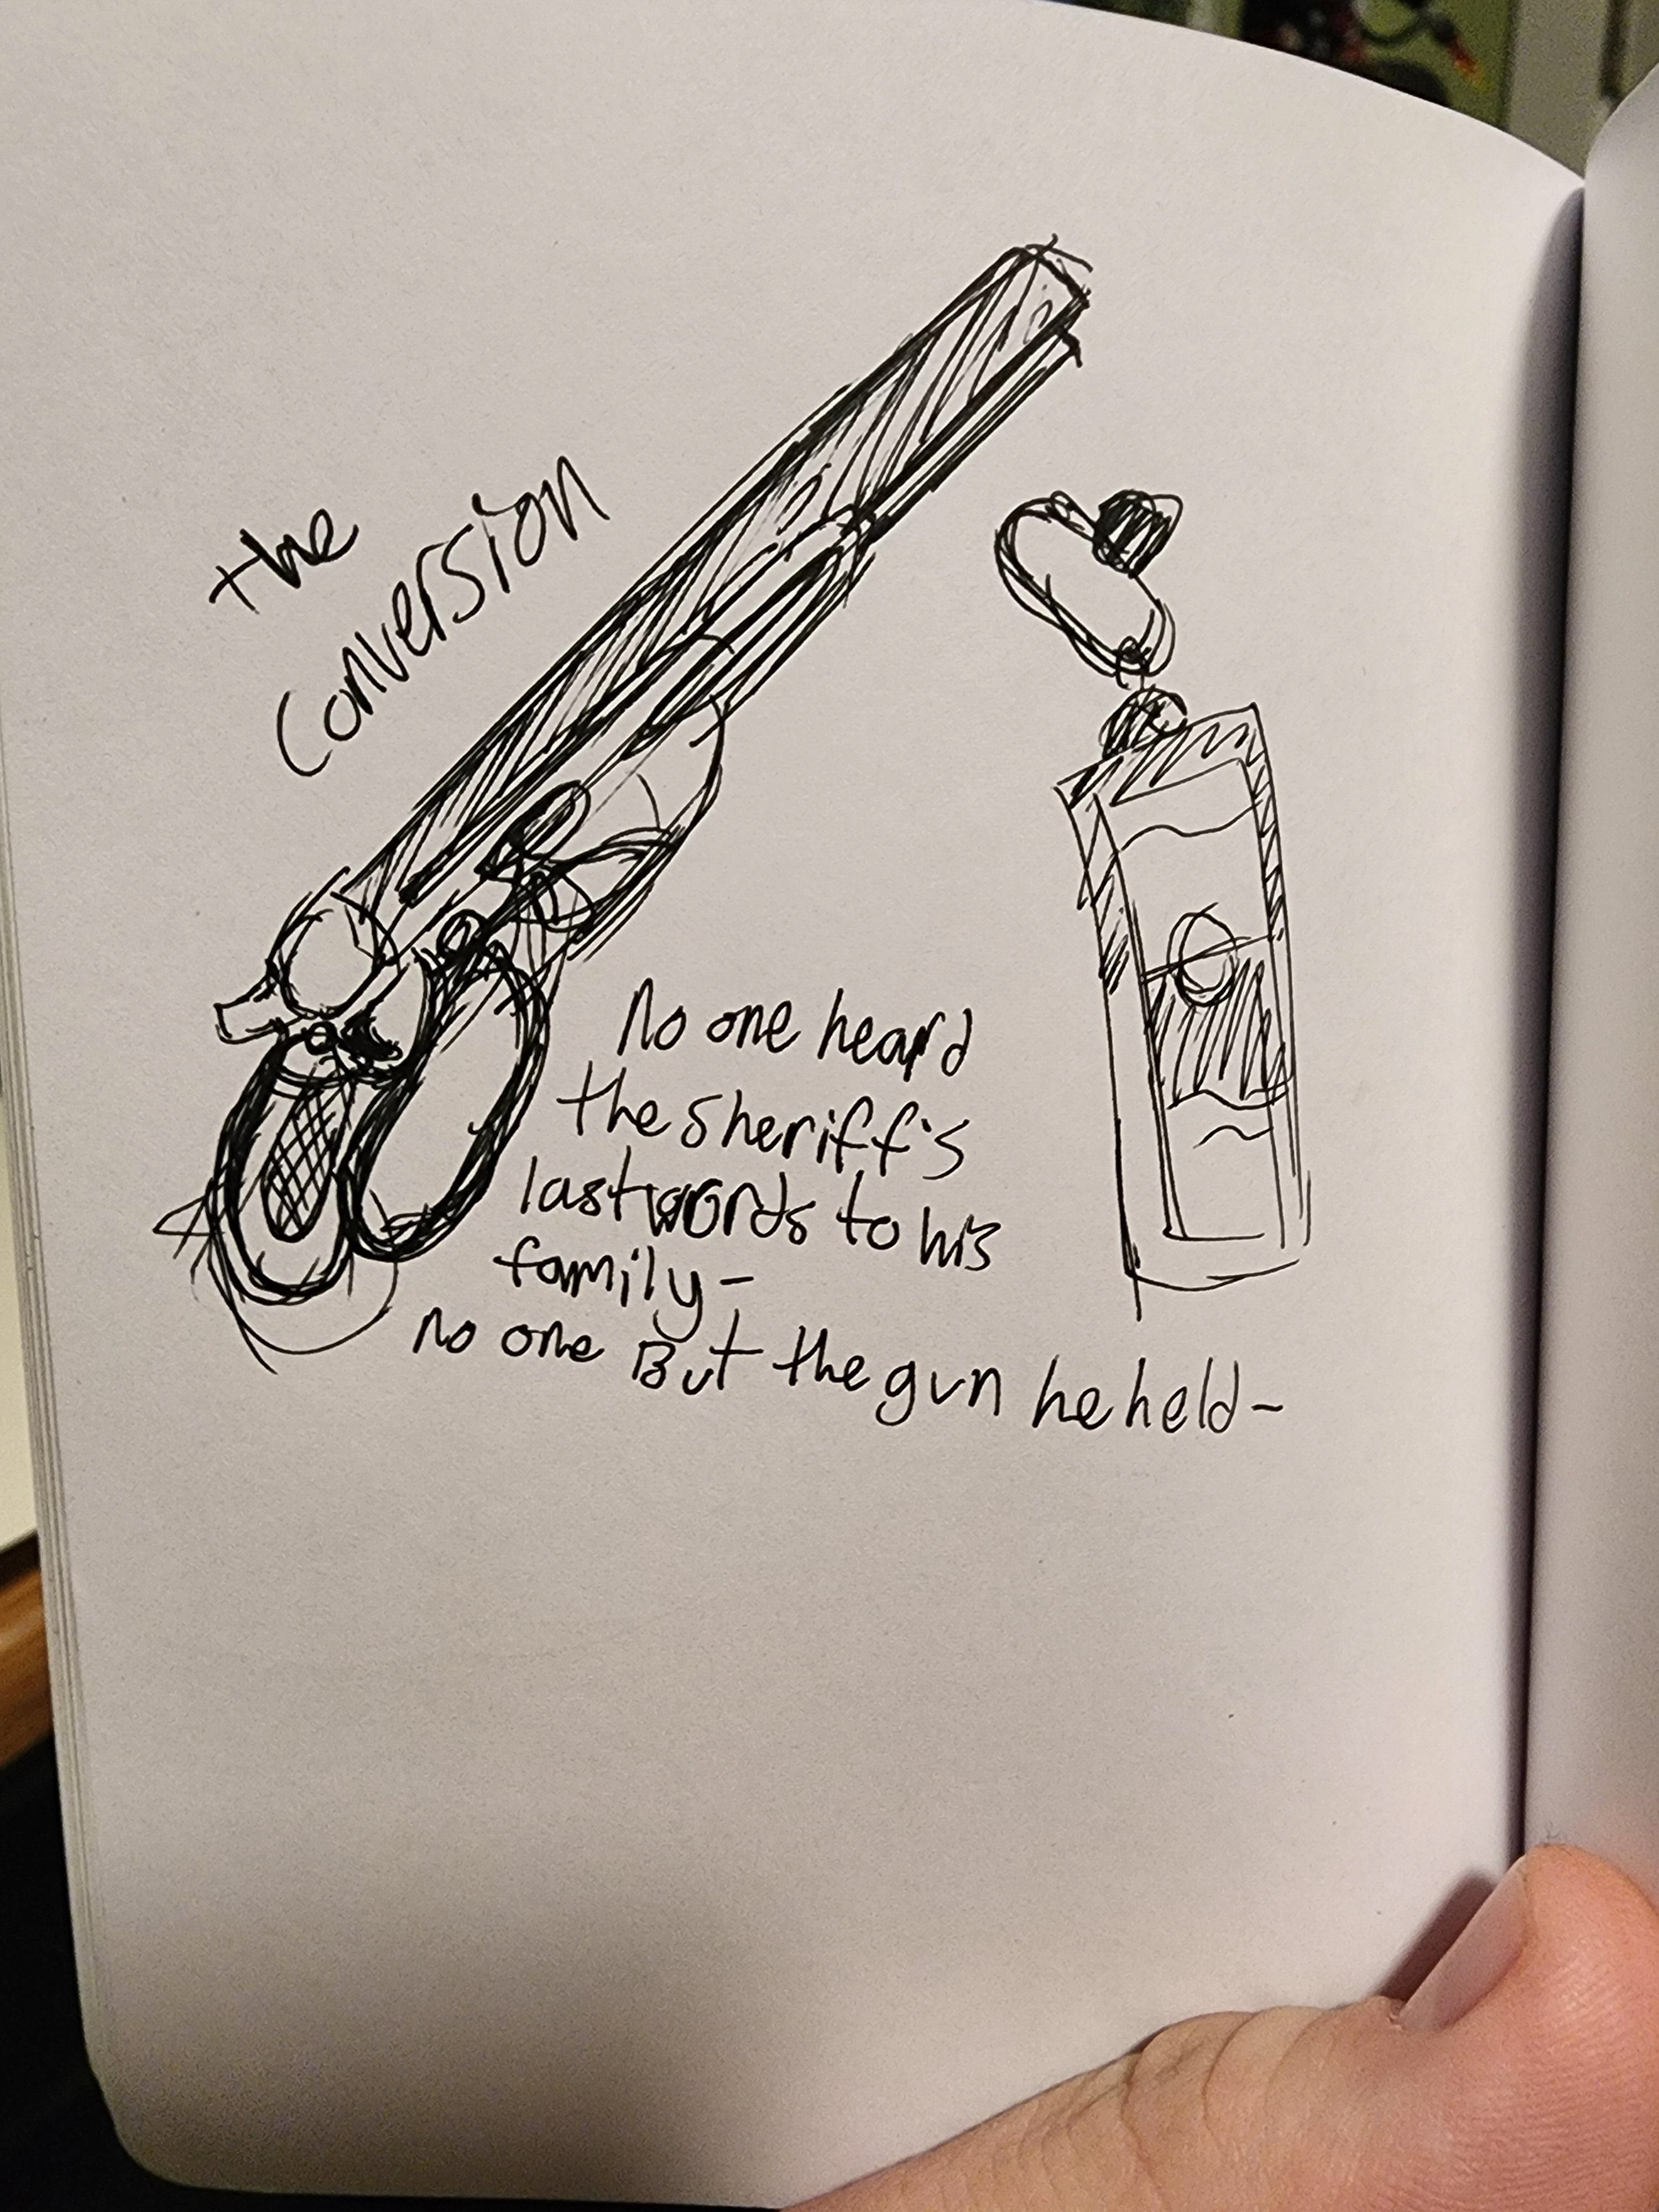 the
Conversion
No one heard
the sheriff's
last words to his
family-
no one But the gun he held-